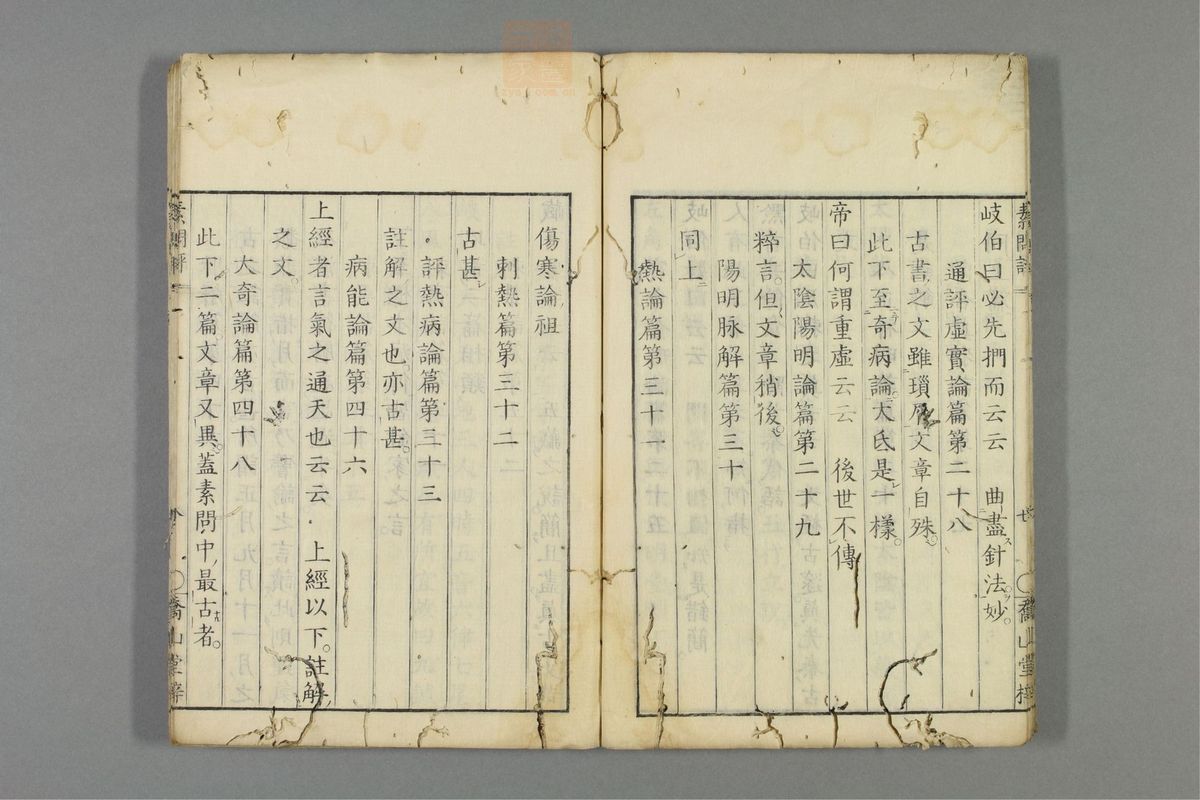 岐伯曰必先捫而云云　曲盡針法妙。
通評虛實論篇第二十八
古書之文雖瑣屑文章自殊。
此下至奇病論大氐是一樣。
帝曰何謂重虛云云　後世不傳
太陰陽明論篇第二十九
粹言。但文章稍後。
陽明脉解篇第三十
同上
熱論篇第三十一
傷寒論祖
刺熱篇第三十二
古甚
評熱病論篇第三十三
註解之文也亦古甚。
病能論篇第四十六
上經者言氣之通天也云云．上經以下。註解
之文。
大奇論篇第四十八
此下二篇文章又異。蓋素問中最古者。
素問評
喬山堂梓